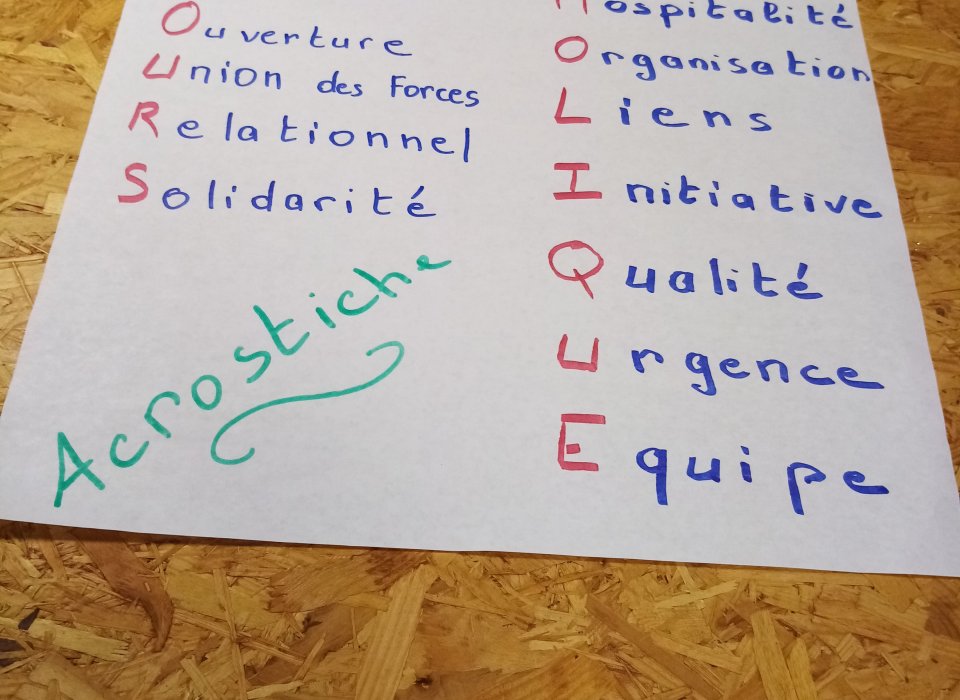 Ouverture
Union des Forces
Relationnel
Solidarité
Hospitalité
Organisation
Liens
Initiative
Qualité
Urgence
Equipe
Acrostiche